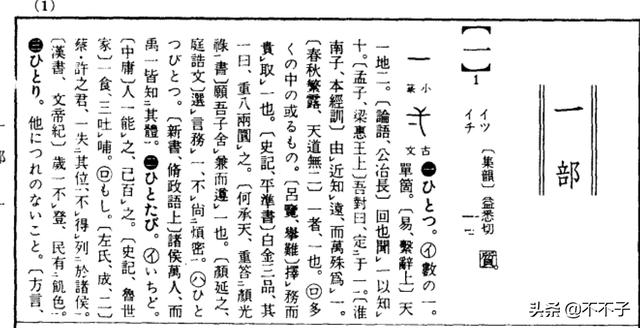 (1)
一部
【一】1
イツ
イチ
〔集韻〕益悉切 質
一 小篆 古文 ㊀ひとつ。㋑數の一。
單箇。〔易、繫辭上〕天
一地二。〔論語、公冶長〕回也聞一以知
十。〔孟子、梁惠王上〕吾對曰、定于一。〔淮
南子、本經訓〕由近知遠、而萬殊爲一。
〔春秋繁露、天道無二〕一者、一也。㋺多
くの中の或るもの。〔呂覽、擧難〕擇務而
貴取一也。〔史記、平準書〕白金三品、其
一曰、重八兩圜之。〔何承天、重答顏光
祿書〕願吾子舍兼而遵一也。〔顏延之、
庭誥文〕選言務一、不尚煩密。㋩ひと
つびとつ。〔新書、脩政語上〕諸侯萬人、而
禹一皆知其體。㊁ひとたび。㋑いちど。
〔中庸〕人一能之、己百之。〔史記、魯世
家〕一食、三吐哺。㋺もし。〔左氏、成、二〕
蔡・許之君、一失其位、不得列於諸侯。
〔漢書、文帝紀〕歲一不登、民有飢色。
㊂ひとり。他につれのないこと。〔方言、
頭条 @不不子